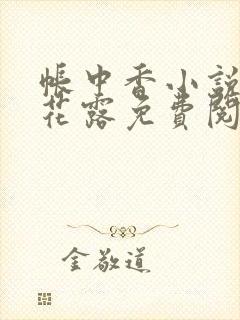 帳中香小說
花露免費閱
金敬道